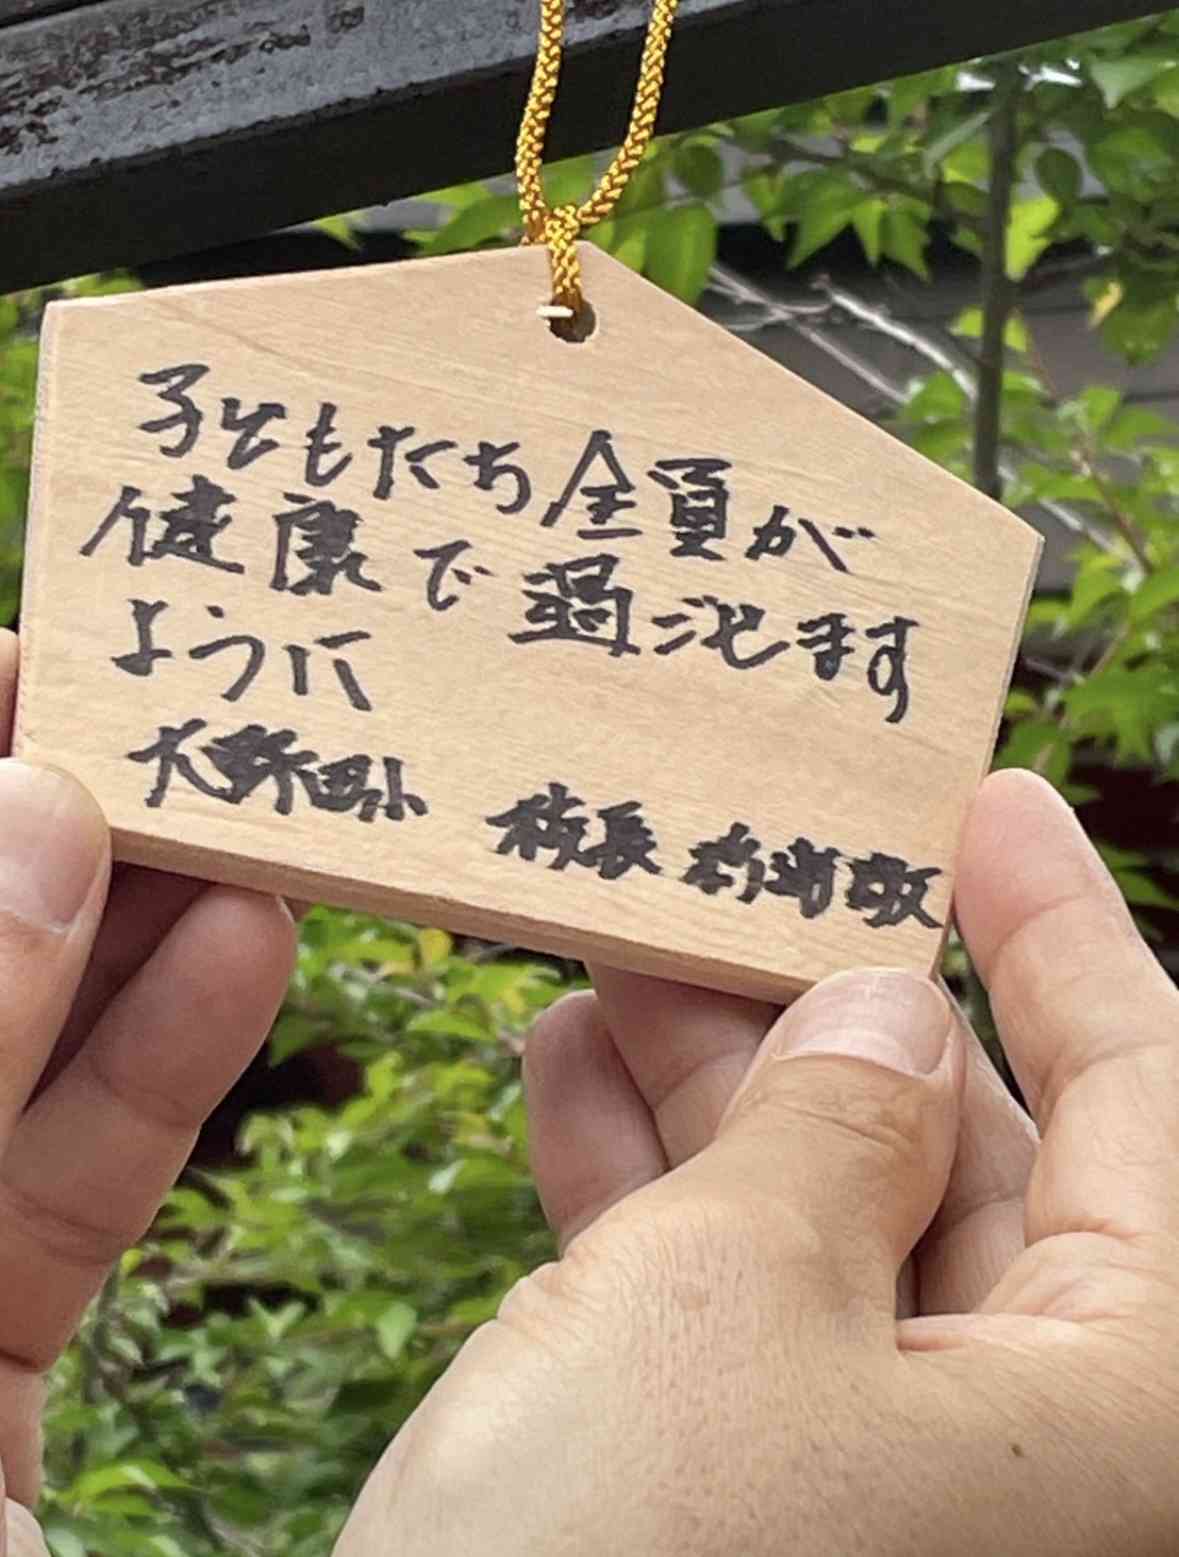 子どもたち全員が
健康で過ごせます
ように
大野田小 校長